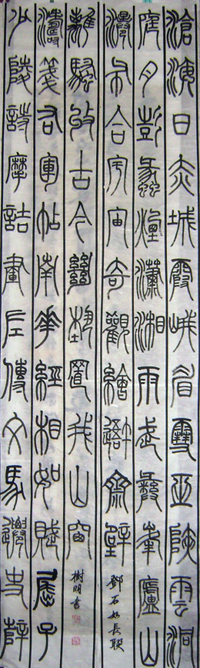 滄海日赤城霞峨眉雪巫陝雲洞
庭月彭蠡煙瀟湘雨武夷峰廬山
瀑布合宇宙奇觀繪吾齋壁
鄧石如長聯
少陵詩摩詰畫左傳文馬遷史薛
濤箋右軍帖南華經相如賦屈子
離騷收古今絕藝置我山窗
樹明書